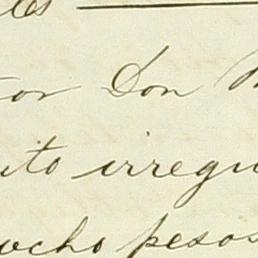 or Don
ito irregu
ocho pesos